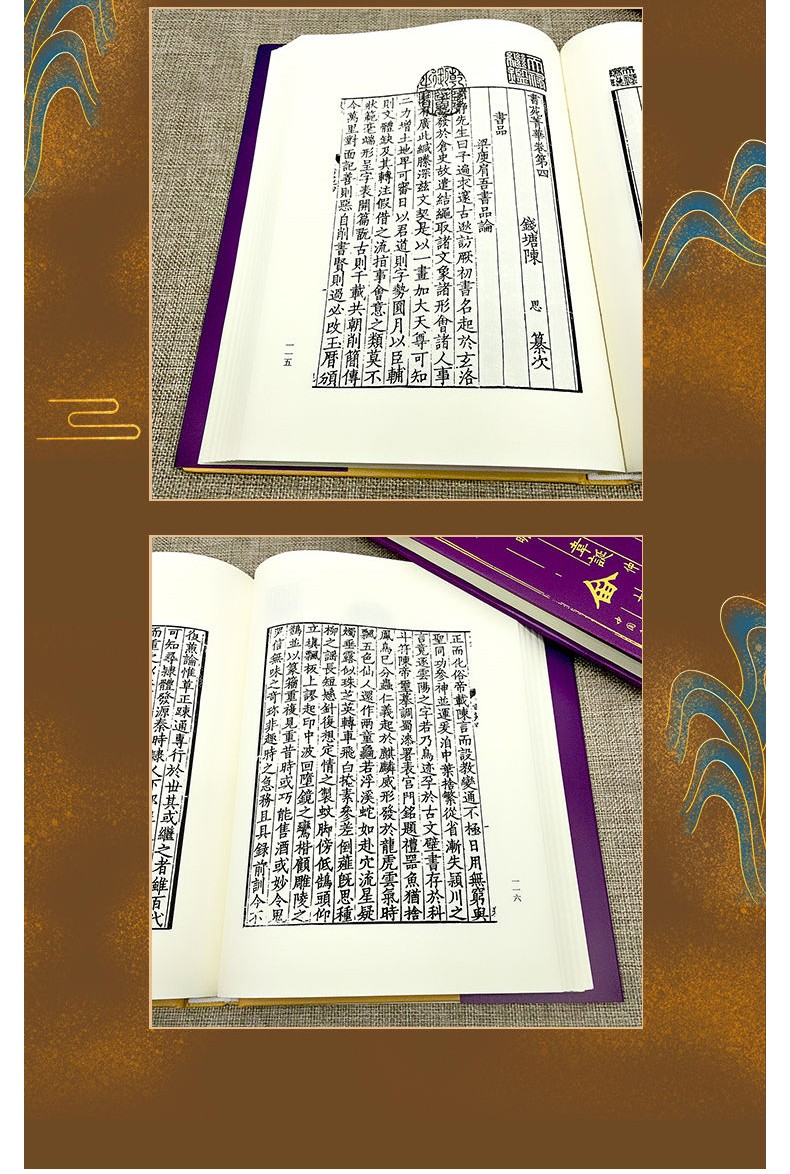 書苑菁華卷第四
錢塘陳　思　纂次
書品
梁庾肩吾書品論
靜先生曰予遍求邃古逖訪厥初書名起於玄洛
發於倉史故遣結繩取諸文象諸形會諸人事
廣此緘縢深茲文契是以一畫加大天尊可知
二力增土地卑可審日以君道則字勢圓月以臣輔
則文體缺及其轉注假借之流指事會意之類莫不
狀範毫端形呈字表開篇翫古則千載共朝削簡傳
今萬里對面記善則惡自削書賢則過必改玉曆頒
一一五
正而化俗帝載陳言而設教變通不極日用無窮與
聖同功參神並運爰洎中葉捨繁從省漸失潁川之
言竟逐雲陽之字若乃鳥迹孚於古文壁書存於科
斗符陳帝璽摹調蜀漆署表宮門銘題禮器魚猶捨
鳳鳥已分蟲仁義起於麒麟威形發於龍虎雲氣時
飄五色仙人還作兩童龜若浮溪蛇如赴穴流星疑
燭垂露似珠芝英轉車飛白掩素參差倒薤旣思種
柳之謡長短懸針復想定情之製蚊脚傍低鵠頭仰
立填飄板上謬起印中波回墮鏡之鸞楷顧雕陵之
鵲並以篆籀重複見重昔時或巧能售酒或妙令思
信無味之奇珍非趣時之急務且具録前訓今不
一一六
復兼論惟草正踈通專行於世其或繼之者雖百代
可知尋隸體發源秦時隸人下
而重之以